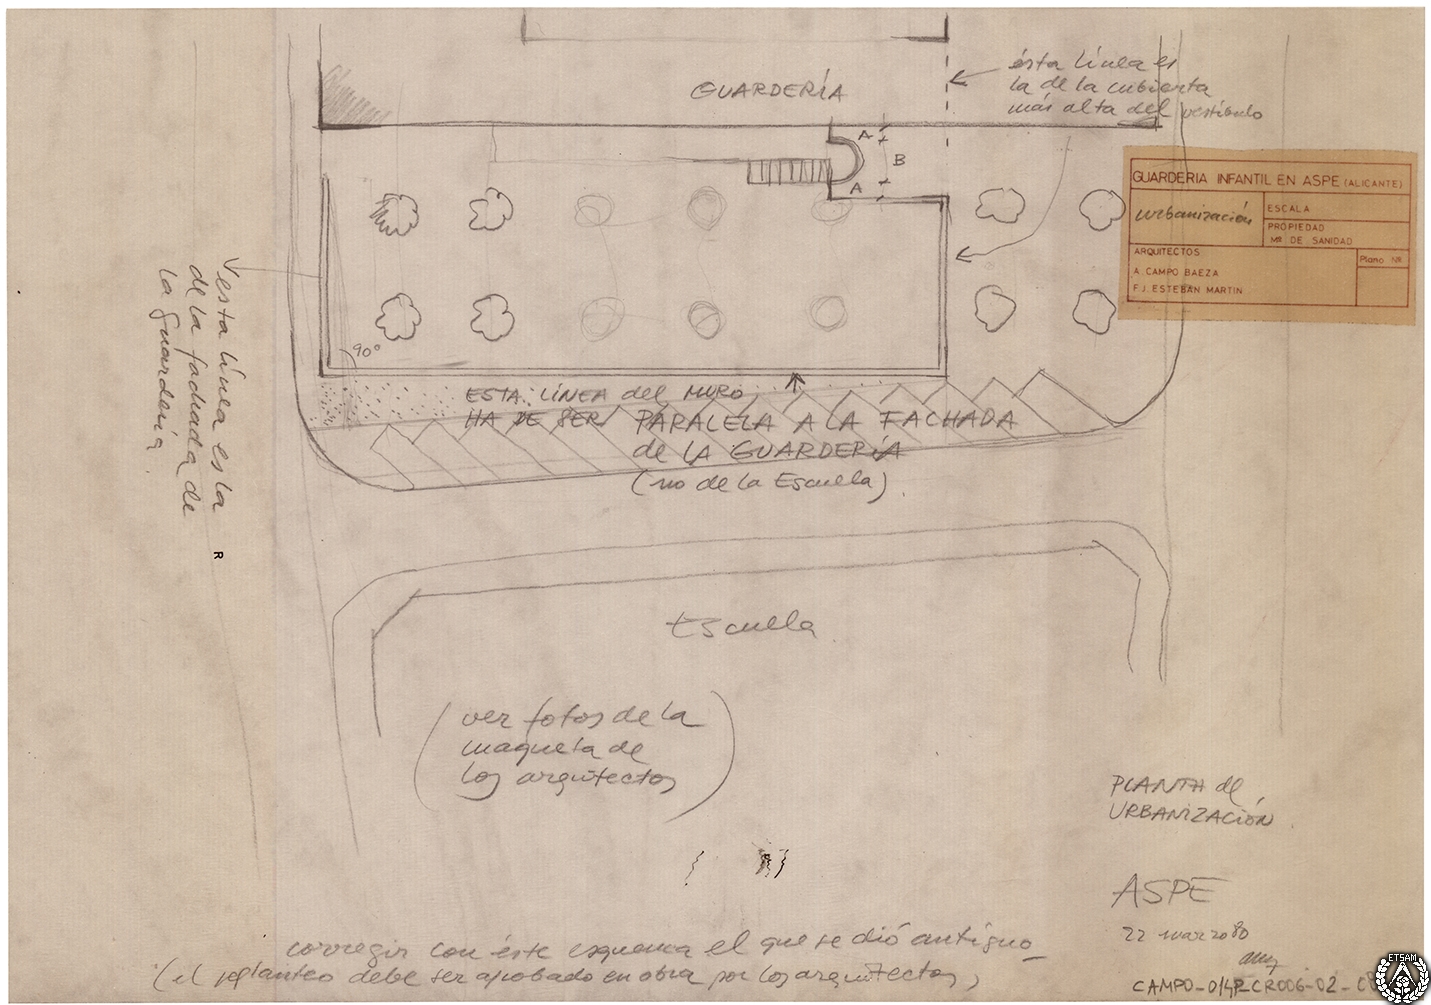 GUARDERÍA
ésta línea es
la de la cubierta
más alta del vestíbulo
A
B
A
GUARDERIA INFANTIL EN ASPE (ALICANTE)
urbanización
ESCALA
PROPIEDAD
Mº DE SANIDAD
ARQUITECTOS
A. CAMPO BAEZA
F.J. ESTEBAN MARTIN
Plano Nº
esta línea es la
de la fachada de
la guardería
90°
ESTA LÍNEA del MURO
HA DE SER PARALELA A LA FACHADA
de LA GUARDERÍA
(no de la Escuela).
R
Escuela
(ver fotos de la
maqueta de
los arquitectos)
PLANTA de
URBANIZACIÓN.
ASPE
22 marzo 80
corregir con éste esquema el que se dió antiguo
(el replanteo debe ser aprobado en obra por los arquitectos)
ETSAM